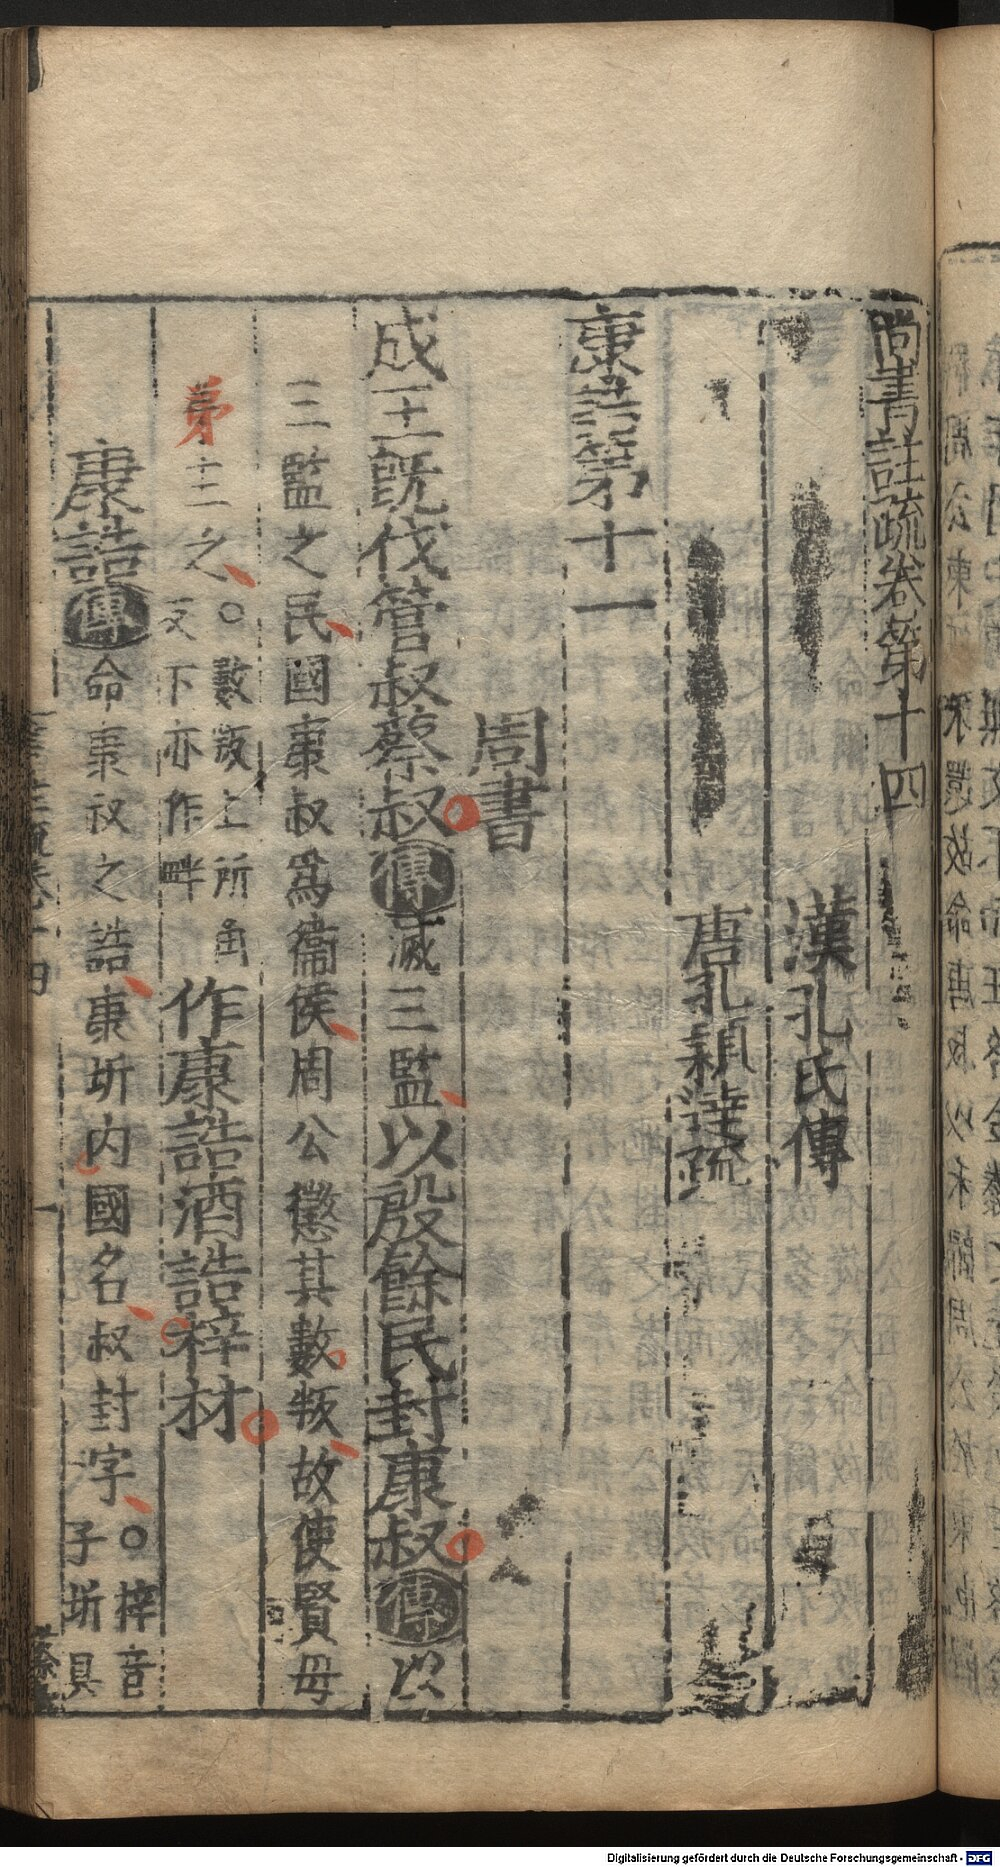 尚書註疏卷第十四
漢孔氏傳
唐孔穎達疏
康誥第十一
周書
成王旣伐管叔蔡叔傳滅三監以殷餘民封康叔傳以
三監之民國康叔爲衞侯周公懲其數叛故使賢母
弟主之○數叛上所角
反下亦作畔
作康誥酒誥梓材
康誥傳命康叔之誥康圻内國名叔封字○梓音
子圻具
Digitalisierung gefördert durch die Deutsche Forschungsgemeinschaft - DFG